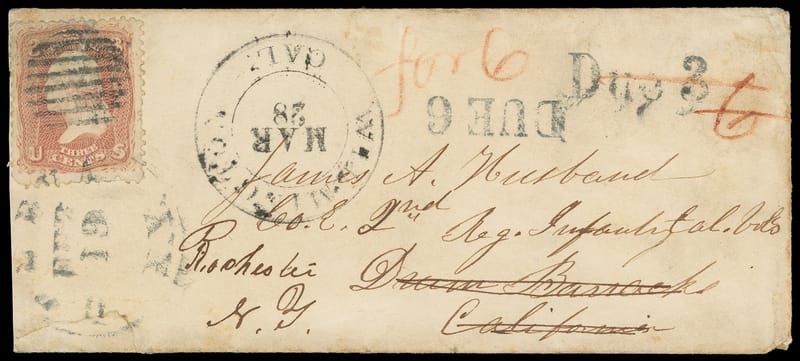 U S
THREE
CENTS
WILMINGTON
CAL
MAR
28
for 6
DUE 6
Due 3
6
FEB
19
N.Y.
James A. Husband
Co. E. 2nd Reg. Infantry Cal. Vols
Rochester
Drum Barracks
N. Y.
California